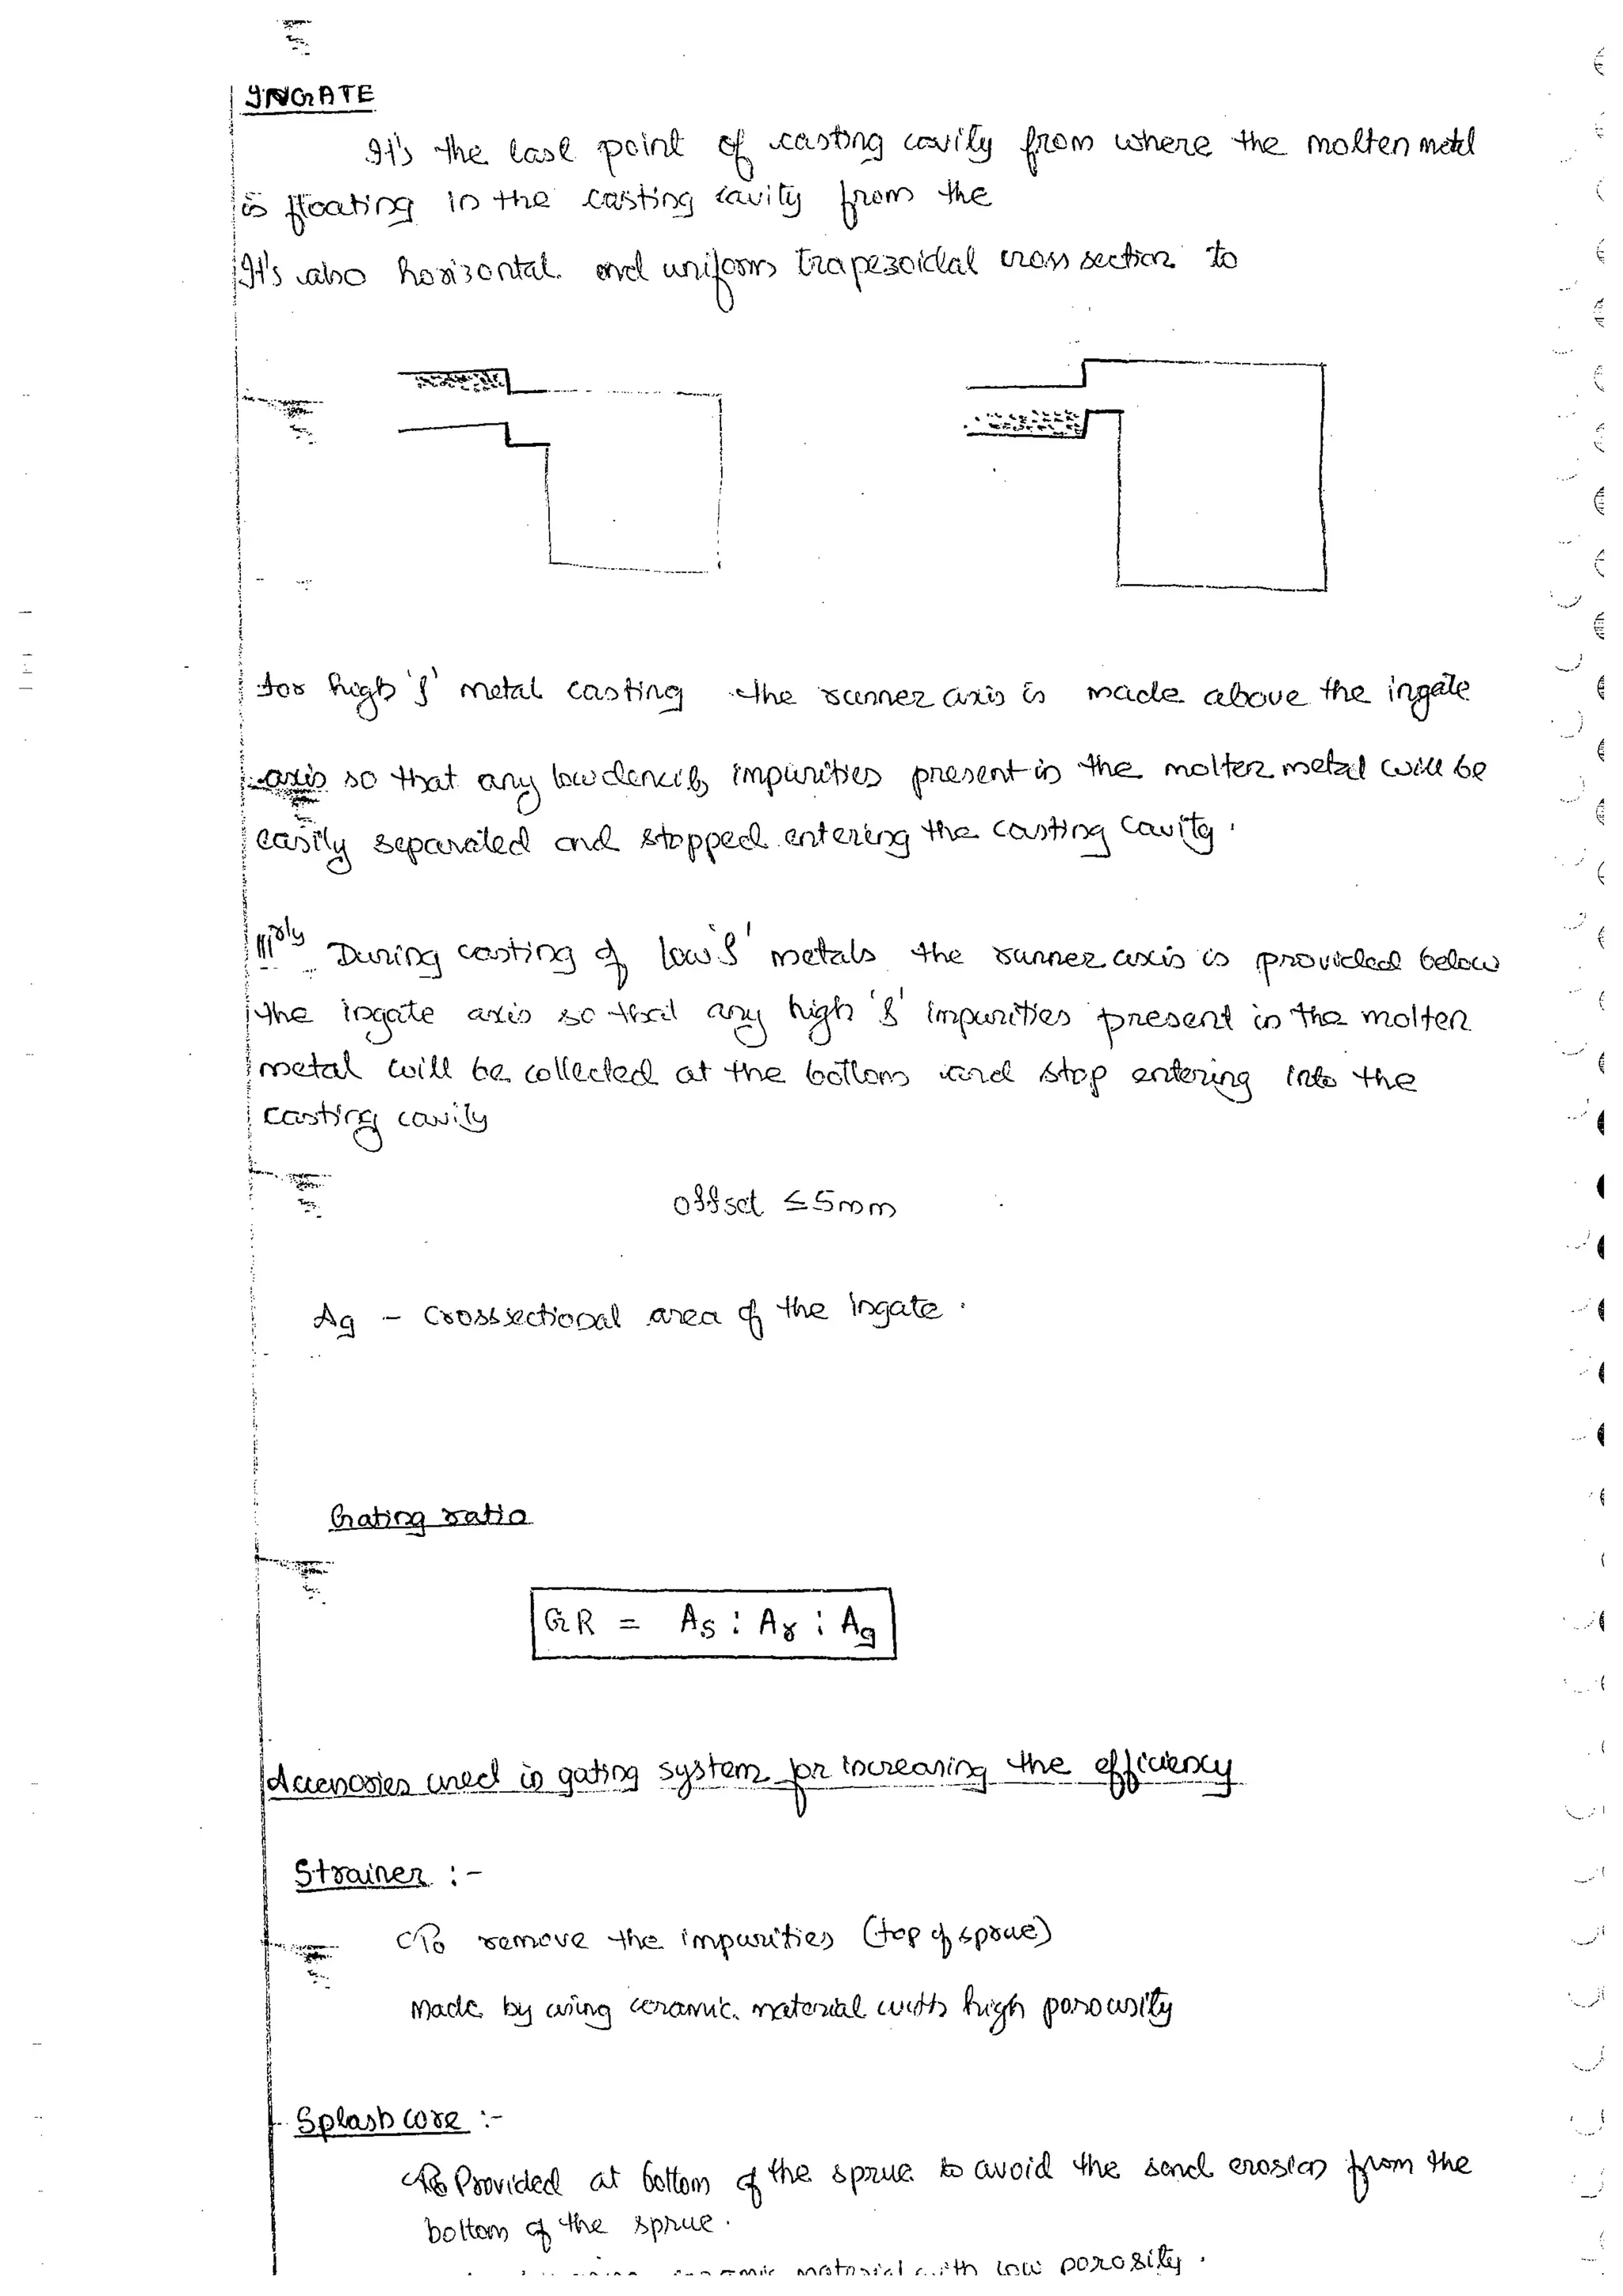 INGATE
It's the last point of casting cavity from where the molten metal
is floating in the casting cavity from the
It's also horizontal and uniform trapezoidal cross section to
for high 'ρ' metal casting the runner axis is made above the ingate
axis so that any low density impurities present in the molten metal will be
easily separated and stopped entering the casting cavity.
|||rly During casting of low 'ρ' metals the runner axis is provided below
the ingate axis so that any high 'ρ' impurities present in the molten
metal will be collected at the bottom and stop entering into the
casting cavity
offset ≤ 5mm
Ag - Crosssectional area of the ingate.
Gating ratio
GR = As : Ar : Ag
Accessories used in gating system for increasing the efficiency
Strainer :-
To remove the impurities (top of sprue)
Made by using ceramic material with high porousity
Splash core :-
Provided at bottom of the sprue to avoid the sand erosion from the
bottom of the sprue.
material with low porosity.